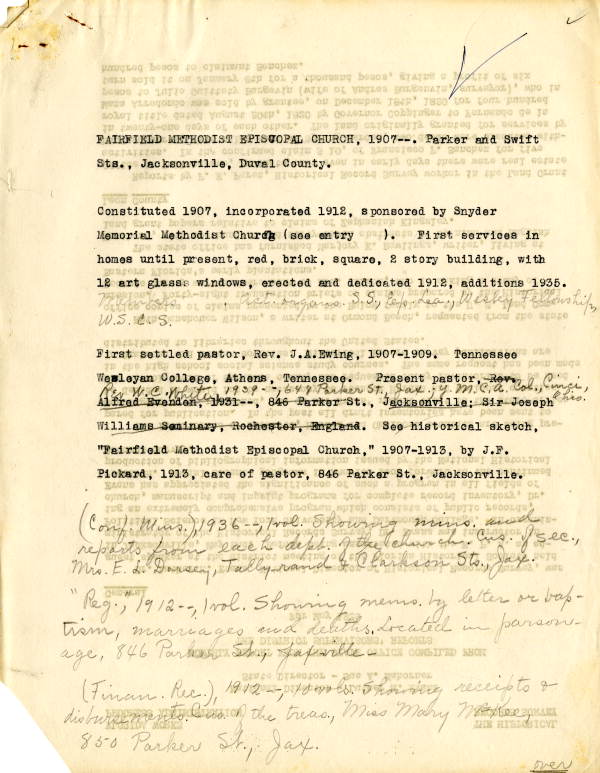 FAIRFIELD METHODIST EPISCOPAL CHURCH, 1907--. Parker and Swift
Sts., Jacksonville, Duval County.
Constituted 1907, incorporated 1912, sponsored by Snyder
Memorial Methodist Church (see entry    ).  First services in
homes until present, red, brick, square, 2 story building, with
12 art glass windows, erected and dedicated 1912, additions 1935.
S.S., Ep. Lea., Wesley Fellowship,
W.S.C.S.
First settled pastor, Rev. J.A.Ewing, 1907-1909.  Tennessee
Wesleyan College, Athens, Tennessee.  Present pastor, Rev.
Rev. W.C. 1939--, 846 Parker St., Jax.; Y.M.C.A. Col., Cinci,
Ohio.
Alfred Evenden, 1931--, 846 Parker St., Jacksonville; Sir Joseph
Williams Seminary, Rochester, England.  See historical sketch,
"Fairfield Methodist Episcopal Church," 1907-1913, by J.F.
Pickard, 1913, care of pastor, 846 Parker St., Jacksonville.
(Conf. Mins.), 1936--, 1 vol. Showing mins. and
reports from each dept. of the church. Cus. of Sec.,
Mrs. E. L. Dorsey, Tallyrand & Clarkson Sts., Jax.
"Reg.," 1912--, 1 vol. Showing mems. by letter or bap-
tism, marriages and deaths. Located in parson-
age, 846 Parker St., Jaxville
(Finan. Rec.), 1912--, 10 vols. Showing receipts &
disbursements. Cus. of the treas., Miss Mary McKee,
850 Parker St., Jax.
over